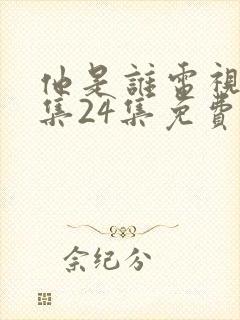 他是誰電視
集24集免費
佘纪分